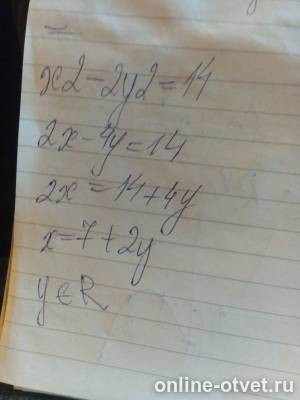 x2-2y2=14
2x-4y=14
2x=14+4y
x=7+2y
y∈R
online-otvet.ru